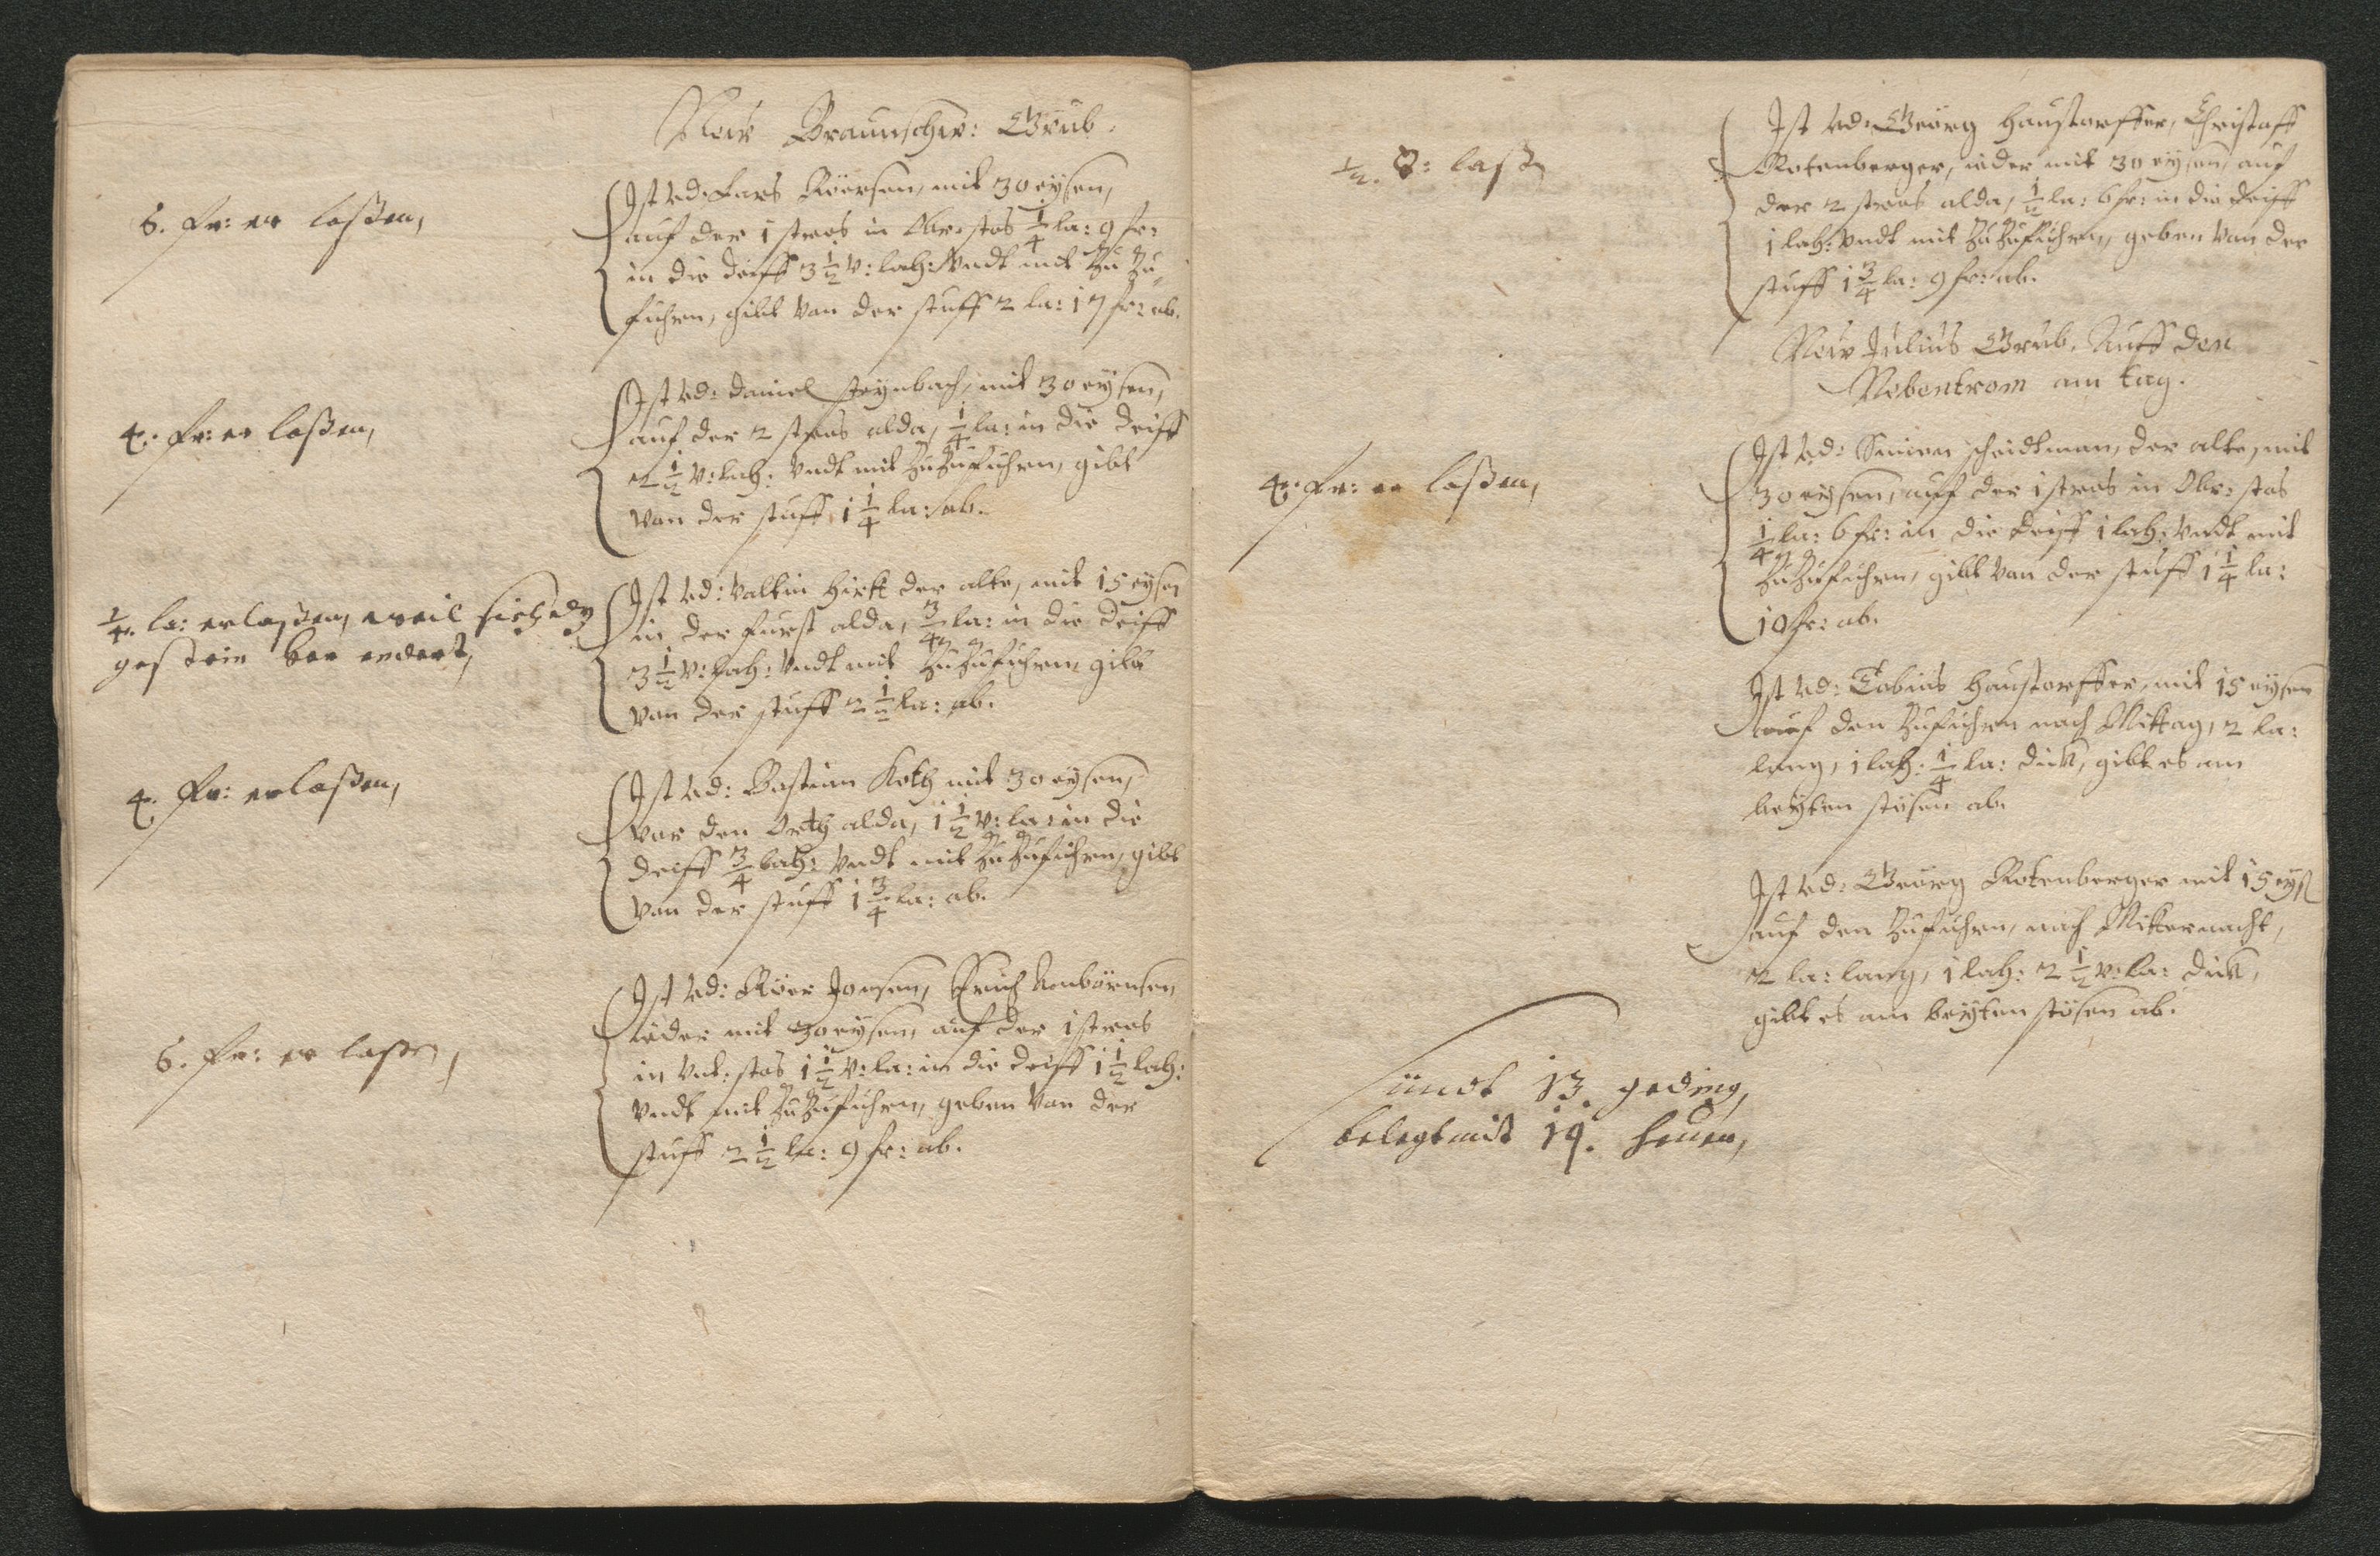 New Braunschw: Grub.
6. fr: er laßen,
Ist vd: Lars Röersen, mit 30 eysen,
auf der 1 stros in Obr: stos 1/4 la: 9 fr:
in die deiff 3 1/2 v: lah: Vndt mit Zu Zu
fuhren, gibt Von der stuff 2 la: 17 fr: ab.
4. fr: er laßen,
Ist vd: Daniel steynbach, mit 30 eysen,
auf der 2 stros alda, 1/4 la: in die deiff
2 1/2 v: lah: Vndt mit ZuZufuhren, gibt
Von der stuff 1 1/4 la: ab.
1/4. la: erlaßen, weil sich dz
gestein ver endert,
Ist vd: Valtin Hirtt der alte, mit 15 eysen
in der furst alda, 3/4 la: in die deiff
3 1/2 v: lah: Vndt mit ZuZufuhren gibt
Von der stuff 2 1/2 la: ab.
4. fr: erlaßen,
Ist vd: Bastian Koth mit 30 eysen,
vor den Orth alda, 1 1/2 v: la: in die
deiff 3/4 lah: Vndt mit ZuZufuhren, gibt
Von der stuff 1 3/4 la: ab.
6. fr: er laßen,
Ist vd: Röer Jonsen, Erich Anbörnsen
ieder mit 30 eysen, auf der 1 stros
in Vnt: stos 1 1/2 v: la: in die deiff 1 1/2 lah:
Vndt mit ZuZufuhren, geben Von der
stuff 2 1/2 la: 9 fr: ab.
1/2. v: laßen
Ist vd: Georg Haustorffer, Christoff
Rotenberger, ieder mit 30 eysen, auf
der 2 stros alda, 1/2 la: 6 fr: in die deiff
1 lah: Vndt mit ZuZufuhren, geben Von der
stuff 1 3/4 la: 9 fr: ab.
New Julius Grub, Auff den
Nebentrom am tag.
4. fr: er laßen,
Ist vd: Simon scheidtman, der alte, mit
30 eysen, auf der 1 stros in Obr: stos
1/4 la: 6 fr: in die deiff 1 lah: Vndt mit
ZuZufuhren, gibt Von der stuff 1 1/4 la:
10 fr: ab.
Ist vd: Tobias Haustorffer, mit 15 eysen
auf den Zufuhren nach Mittag, 2 la:
lang, 1 lah: 1/4 la: dick, gibt es am
beyten stösen ab.
Ist vd: Georg Rotenberger mit 15 eys
auf den Zufuhren, nach Mitternacht,
2 la: lang, 1 lah: 2 1/2 v: la: dick,
gibt es am beyten stösen ab.
Sündt 13. geding,
belegt mit 19. heuer,